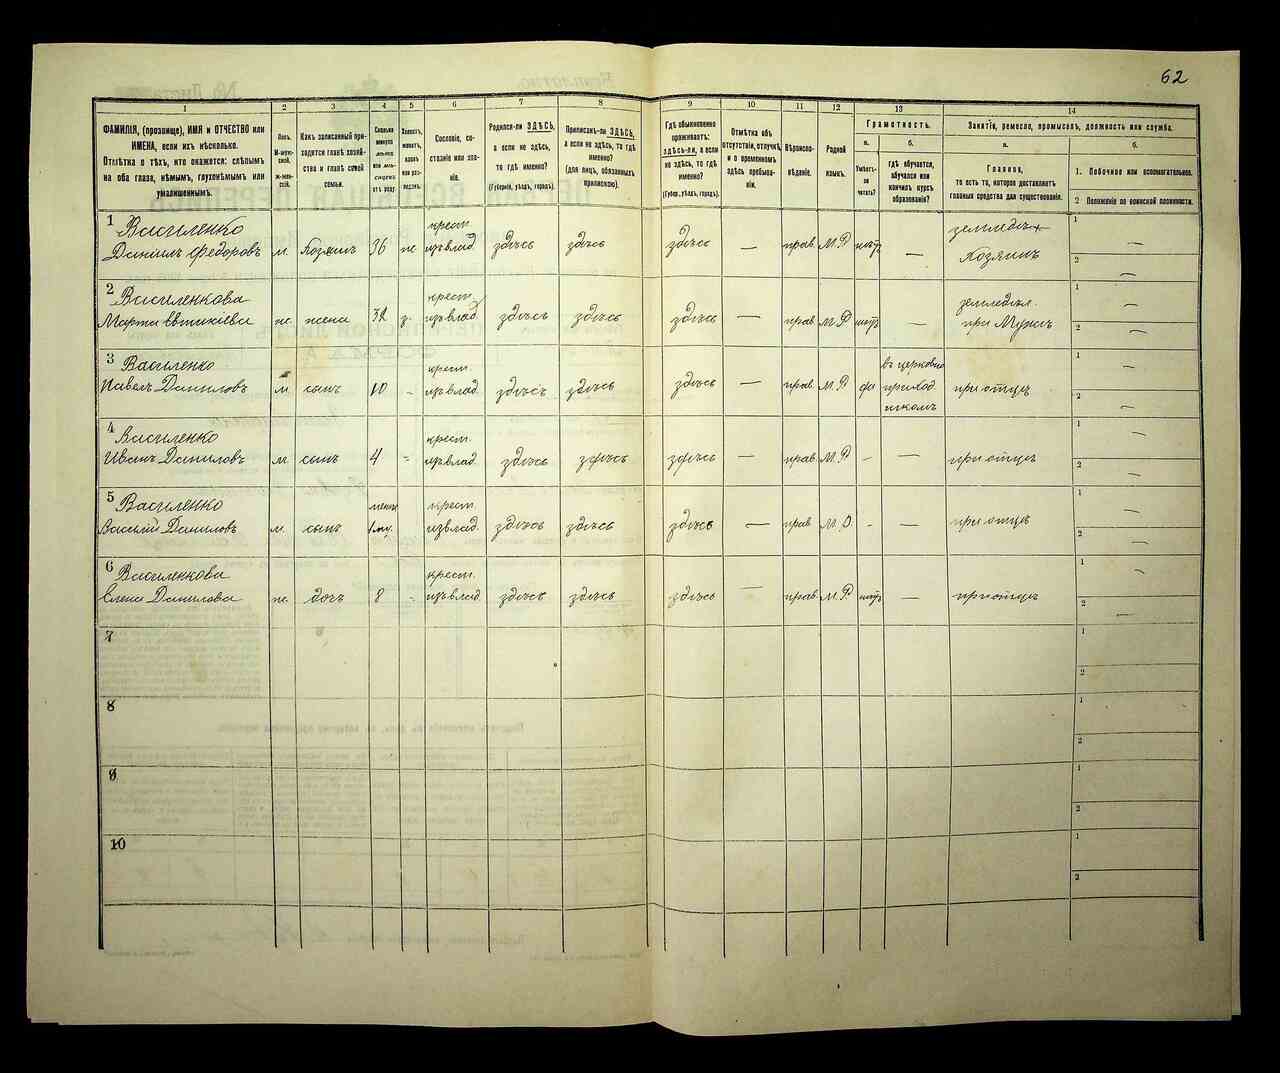 62
1
2
3
4
5
6
7
8
9
10
11
12
13
14
ФАМИЛІЯ, (прозвище), ИМЯ и ОТЧЕСТВО или
ИМЕНА, если ихъ нѣсколько.
Отмѣтка о тѣхъ, кто окажется: слѣпымъ
на оба глаза, нѣмымъ, глухонѣмымъ или
умалишеннымъ.
Полъ.
М-муж-
ской,
ж-жен-
скій.
Какъ записанный при-
ходится главѣ хозяй-
ства и главѣ своей
семьи.
Сколько
минуло
лѣтъ
или мѣ-
сяцевъ
отъ роду
Холостъ,
женатъ,
вдовъ
или раз-
веденъ.
Сословіе, со-
стояніе или зва-
ніе.
Родился-ли ЗДѢСЬ,
а если не здѣсь,
то гдѣ именно?
(Губернія, уѣздъ, городъ).
Приписанъ-ли ЗДѢСЬ,
а если не здѣсь, то гдѣ
именно?
(для лицъ, обязанныхъ
припискою).
Гдѣ обыкновенно
проживаетъ:
здѣсь-ли, а если
не здѣсь, то гдѣ
именно?
(Губер., уѣздъ, городъ).
Отмѣтка объ
отсутствіи, отлучкѣ
и о временномъ
здѣсь пребыва-
ніи.
Вѣроиспо-
вѣданіе.
Родной
языкъ.
Грамотность.
а.
б.
Умѣетъ-
ли
читать?
Гдѣ обучается,
обучался или
кончилъ курсъ
образованія?
Занятіе, ремесло, промыселъ, должность или служба.
а.
б.
Главное,
то есть то, которое доставляетъ
главныя средства для существованія.
1. Побочное или вспомогательное.
2 Положеніе по воинской повинности.
1 Василенко
Даніилъ Федоровъ м. Хозяинъ 36 же крест. изъ влад. здѣсь здѣсь здѣсь — прав. М.Р. нѣтъ — земледѣл. Хозяинъ 1 — 2 —
2 Василенкова
Марта Евтихіева ж. жена 32 з. крест. изъ влад. здѣсь здѣсь здѣсь — прав. М.Р. нѣтъ — земледѣл. при Мужѣ 1 — 2 —
3 Василенко
Павелъ Даниловъ м сынъ 10 - крест. изъ влад. здѣсь здѣсь здѣсь — прав. М.Р. да въ церковно приход. школѣ при отцѣ 1 — 2 —
4 Василенко
Иванъ Даниловъ м. сынъ 4 - крест. изъ влад. здѣсь здѣсь здѣсь — прав. М.Р. - — при отцѣ 1 — 2 —
5 Василенко
Василій Даниловъ м. сынъ менѣе 1 му. - крест. изъ влад. здѣсь здѣсь здѣсь — прав. М.Р. - — при отцѣ 1 — 2 —
6 Василенкова
Елена Данилова ж. дочь 8 - крест. изъ влад. здѣсь здѣсь здѣсь — прав. М.Р. нѣтъ — при отцѣ 1 — 2 —
7 1 2
8 1 2
9 1 2
10 1 2